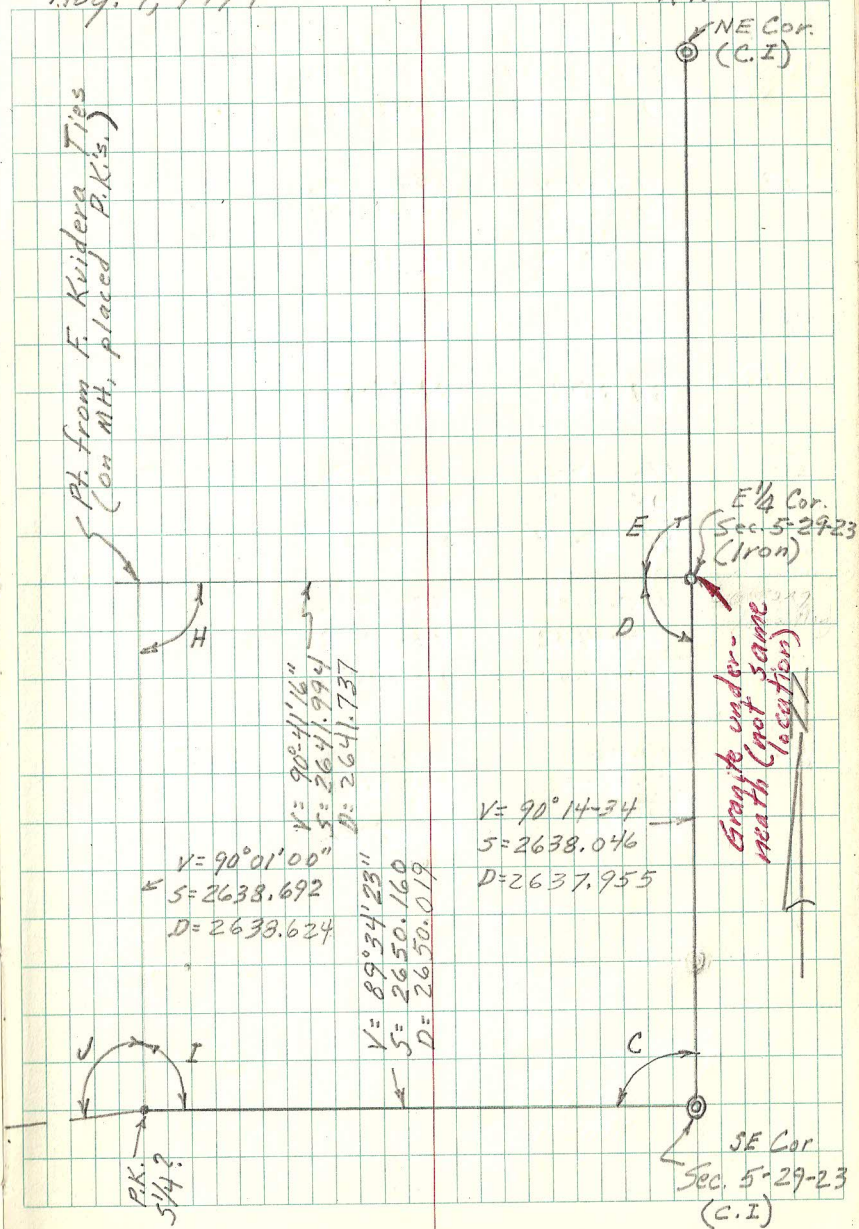 NE Cor.
(C.I)
Pt. from F. Kvidera Ties
(on MH, placed P.K.'s.)
E 1/4 Cor.
Sec. 5-29-23
(Iron)
E
D
H
Granite under-
neath (not same
location)
V= 90°-41'16"
S= 2641.994
D= 2641.737
V= 90°14-34
S=2638.046
D=2637.955
V= 90°01'00"
S=2638.692
D=2638.624
V= 89°34'23"
S= 2650.160
D= 2650.019
J
I
C
P.K.
S 1/4?
SE Cor
Sec. 5-29-23
(C.I)